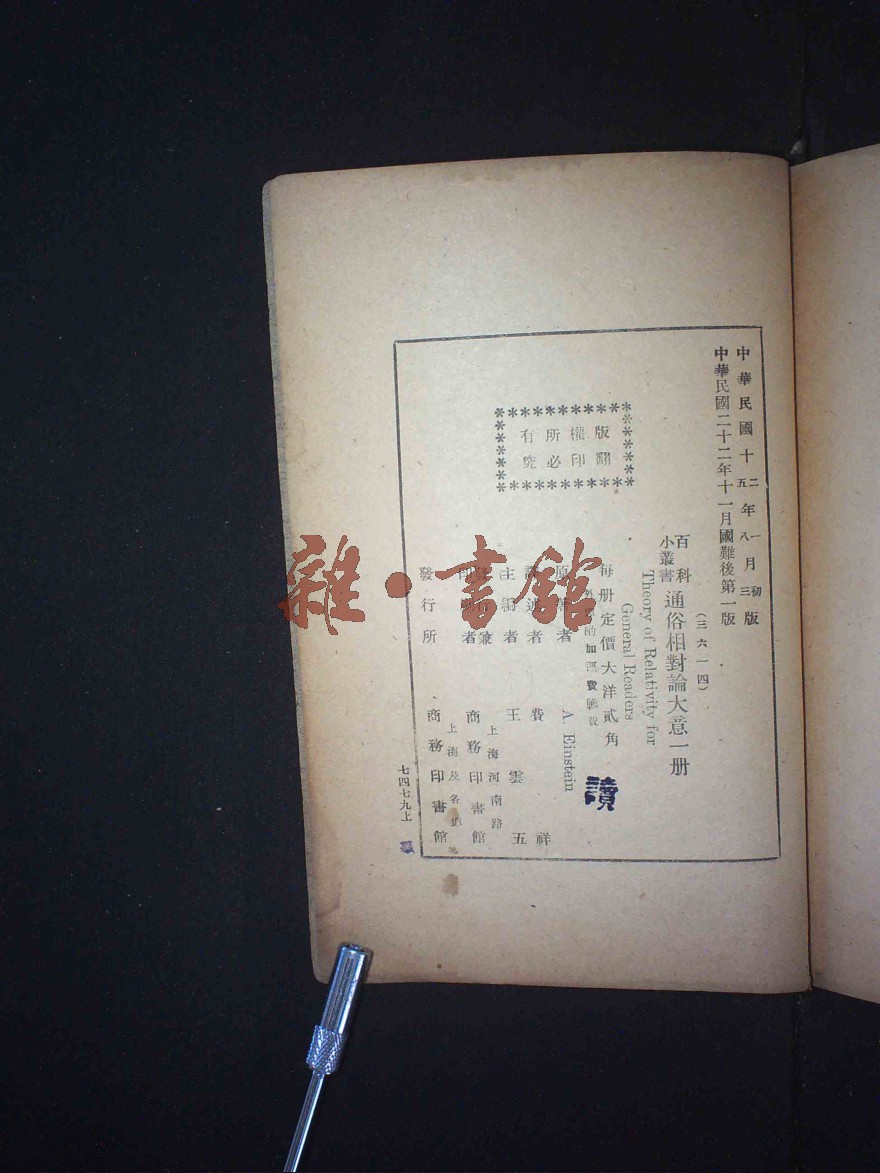 中華民國十二年一月初版
五八三
中華民國二十二年十一月國難後第一版
(三六一四)
百科小叢書 通俗相對論大意一册
Theory of Relativity for
General Readers
每册定價大洋貳角
外埠酌加運費匯費
讀
版權所有
翻印必究
原著者 A. Einstein
譯述者 費祥
主編者 王雲五
發行兼印刷者 上海河南路 商務印書館
發行所 上海及各埠 商務印書館
七四七九上
雜·書館